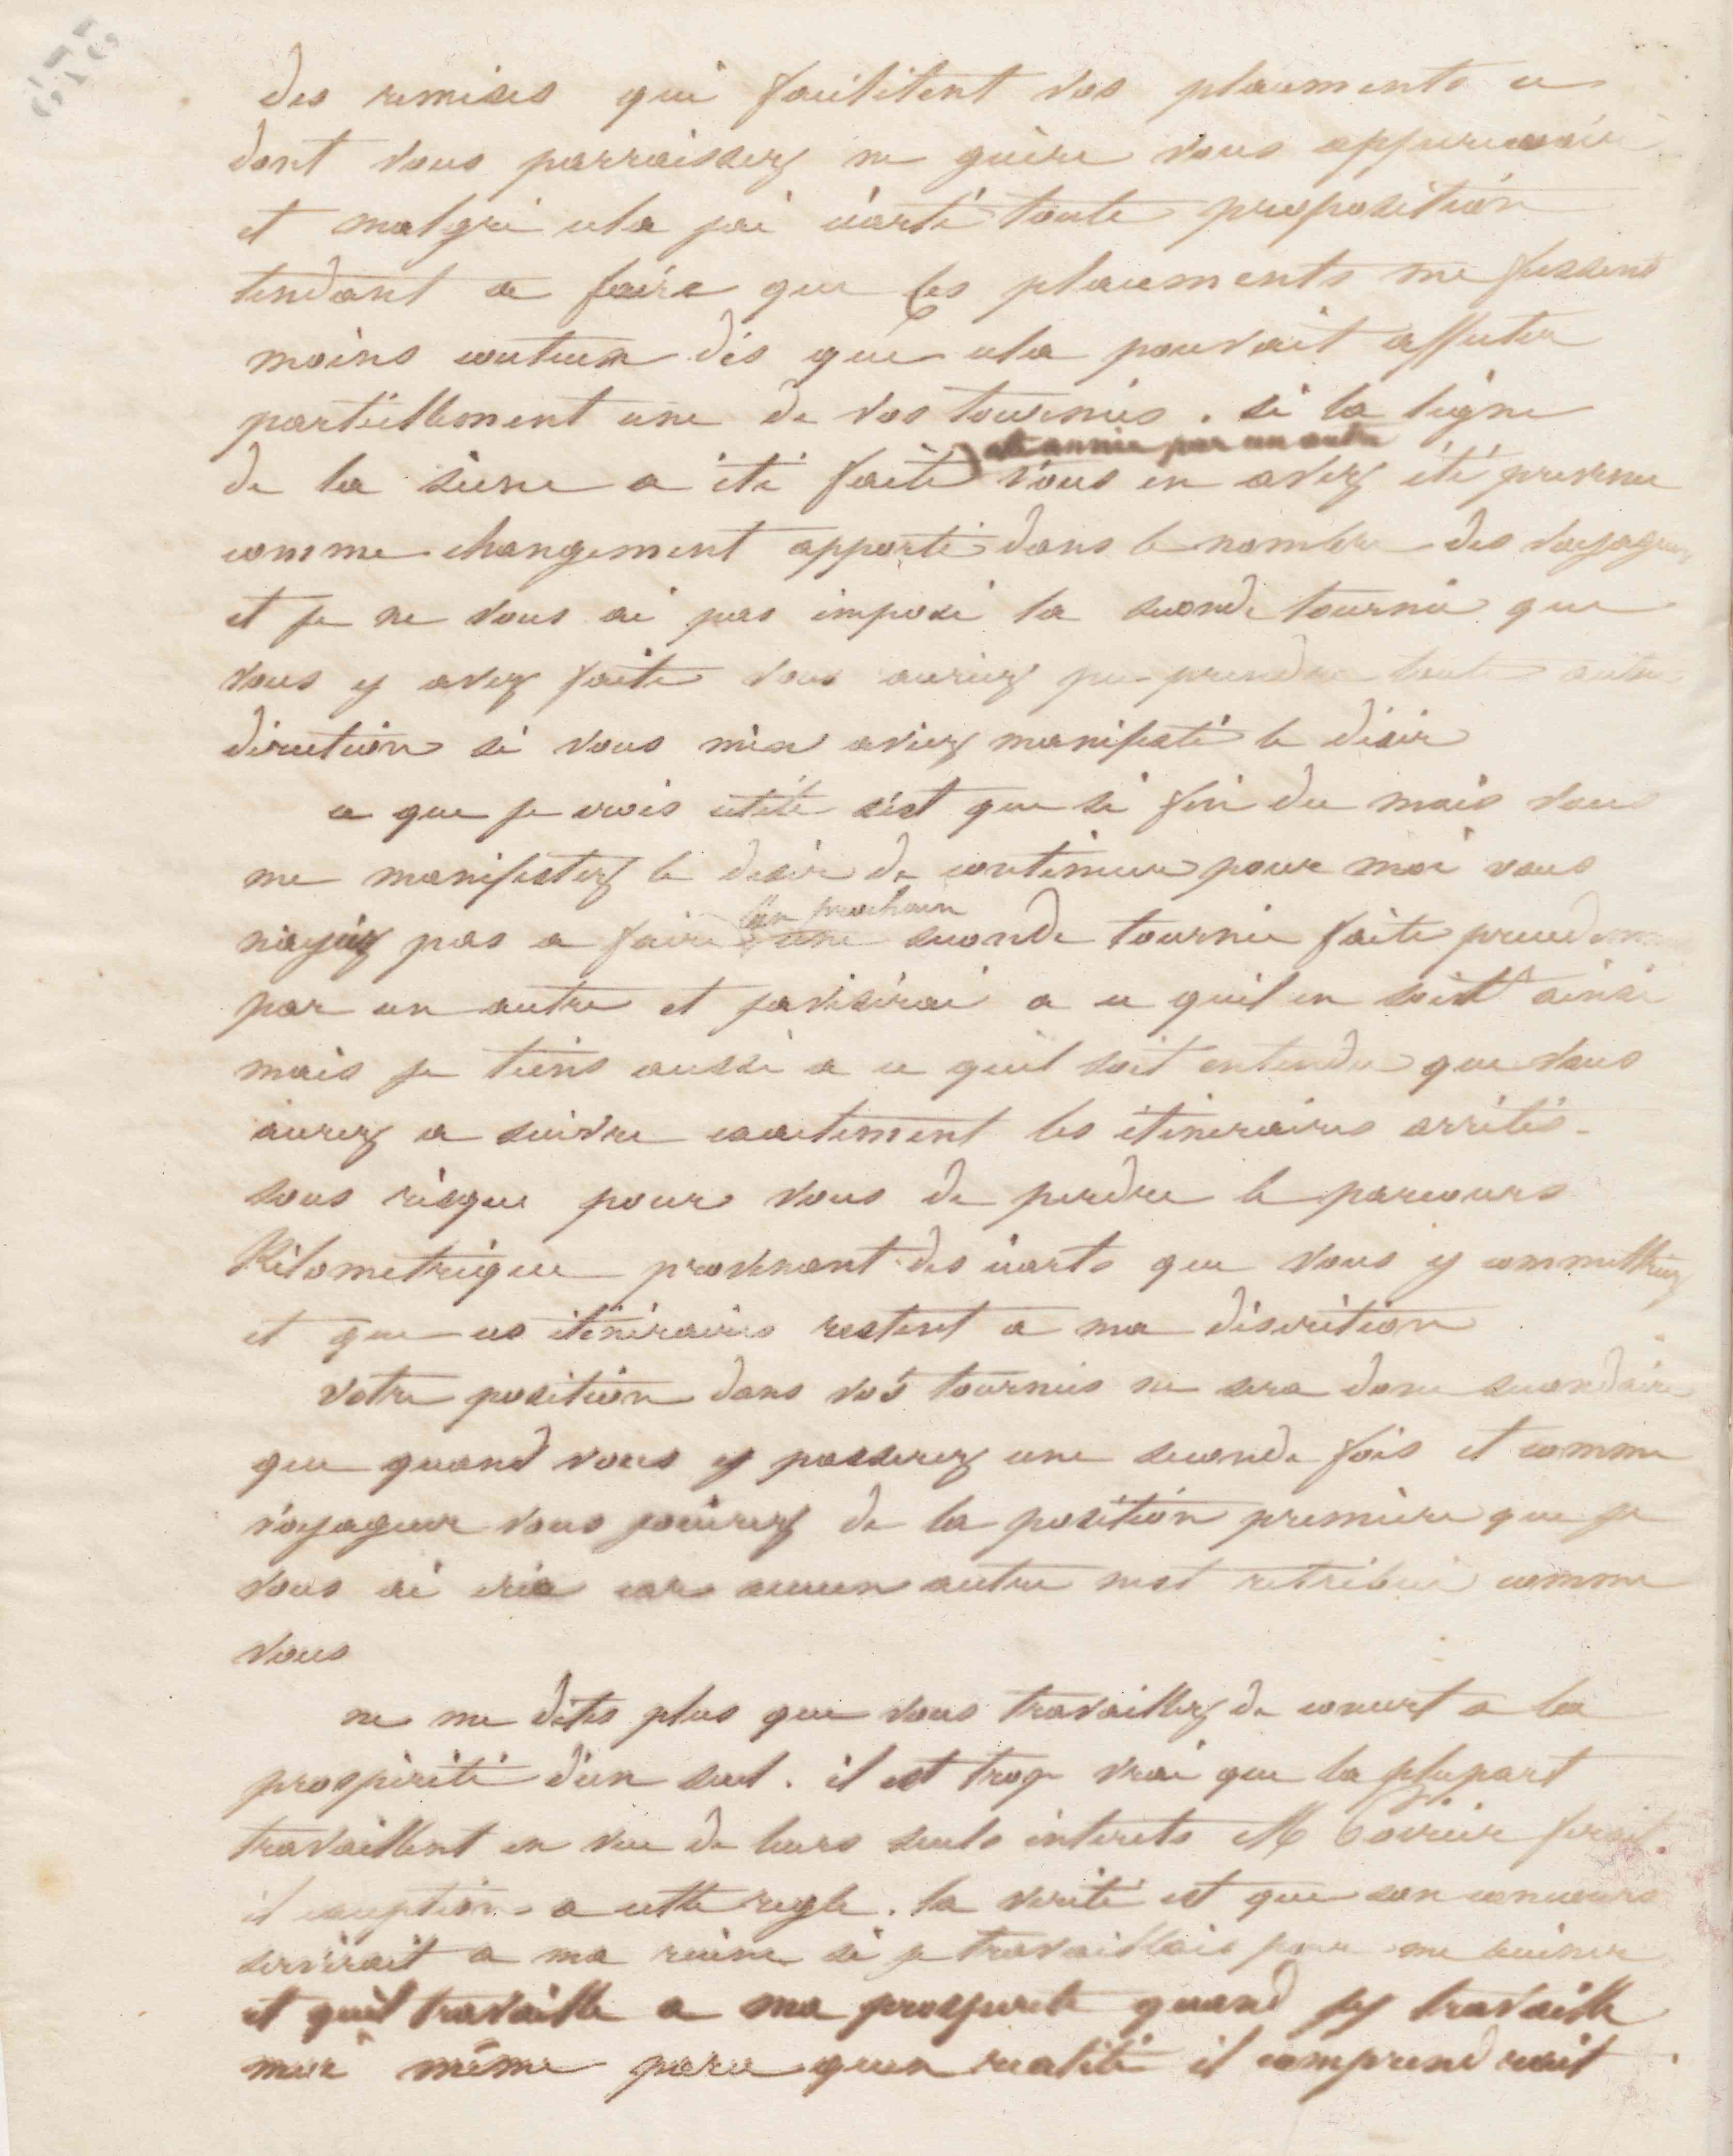 des remises qui facilitent vos placements ce
dont vous parraissez ne guère vous appercevoir
et malgré cela jai écarté toute proposition
tendant a faire que les placements me fussent
moins couteux dès que cela pouvait affecter
partiellement une de vos tournées. si la ligne
cette année par un autre
de la seine a été faite vous en avez été prevenu
comme changement apporté dans le nombre des voyageurs
et je ne vous ai pas imposé la seconde tournée que
vous y avez faite vous auriez pu prendre toute autre
direction si vous m'en aviez manifesté le désir
ce que je crois utile c'est que si fin du mois vous
me manifestez le desir de continuer pour moi vous
l'an prochain
n'ayiez pas a faire une seconde tournée faite precedemment
par un autre et javiserai a ce quil en soit ainsi
mais je tiens aussi a ce quil soit entendu que vous
aurez a suivre exactement les itineraires arrètés
sous risque pour vous de perdre le parcours
Kilometrique provenant des écarts que vous y commettriez
et que ces itinéraires restent a ma discrétion
votre position dans vos tournées ne sera donc secondaire
que quand vous y passerez une seconde fois et comme
voyageur vous jouirez de la position première que je
vous ai créé car aucun autre nest retribué comme
vous
ne me dites plus que vous travaillez de concert a la
prospérité d'un seul. il est trop vrai que la plupart
travaillent en vue de leurs seuls interets M ferait
il exception a cette regle. la verité est que son concours
servirait a ma ruine si je travaillais pour me ruiner
et quil travaille a ma prosperite quand jy travaille
moi même parce quen realité il comprendrait